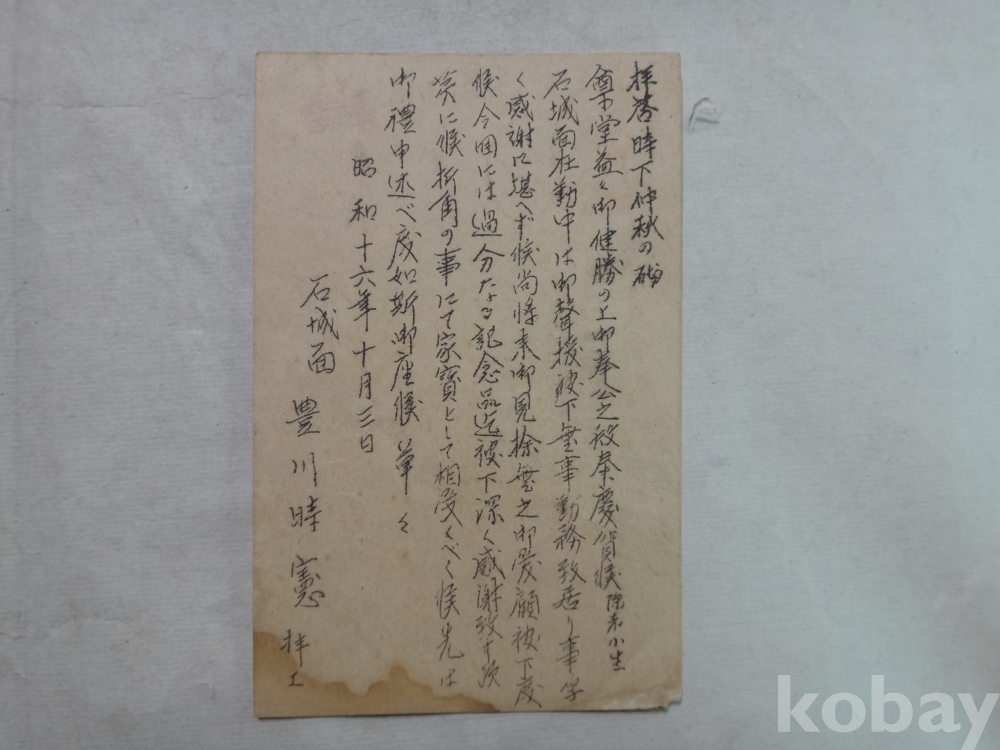 拝啓時下仲秋の砌
尊堂益々御健勝の上御奉公之段奉慶賀候陳者小生
石城面在勤中は御聲援被下無事勤務致居り事
く感謝に堪へず候尚将来御見捨無之御愛顧被下度
候今回には過分たる記念品迄被下深く感謝致す次
第に候折角の事にて家寶として相受くべく候先は
御禮申述べ度如斯御座候 草々
昭和十六年十月三日
石城面
豊川時憲 拝上
kobay